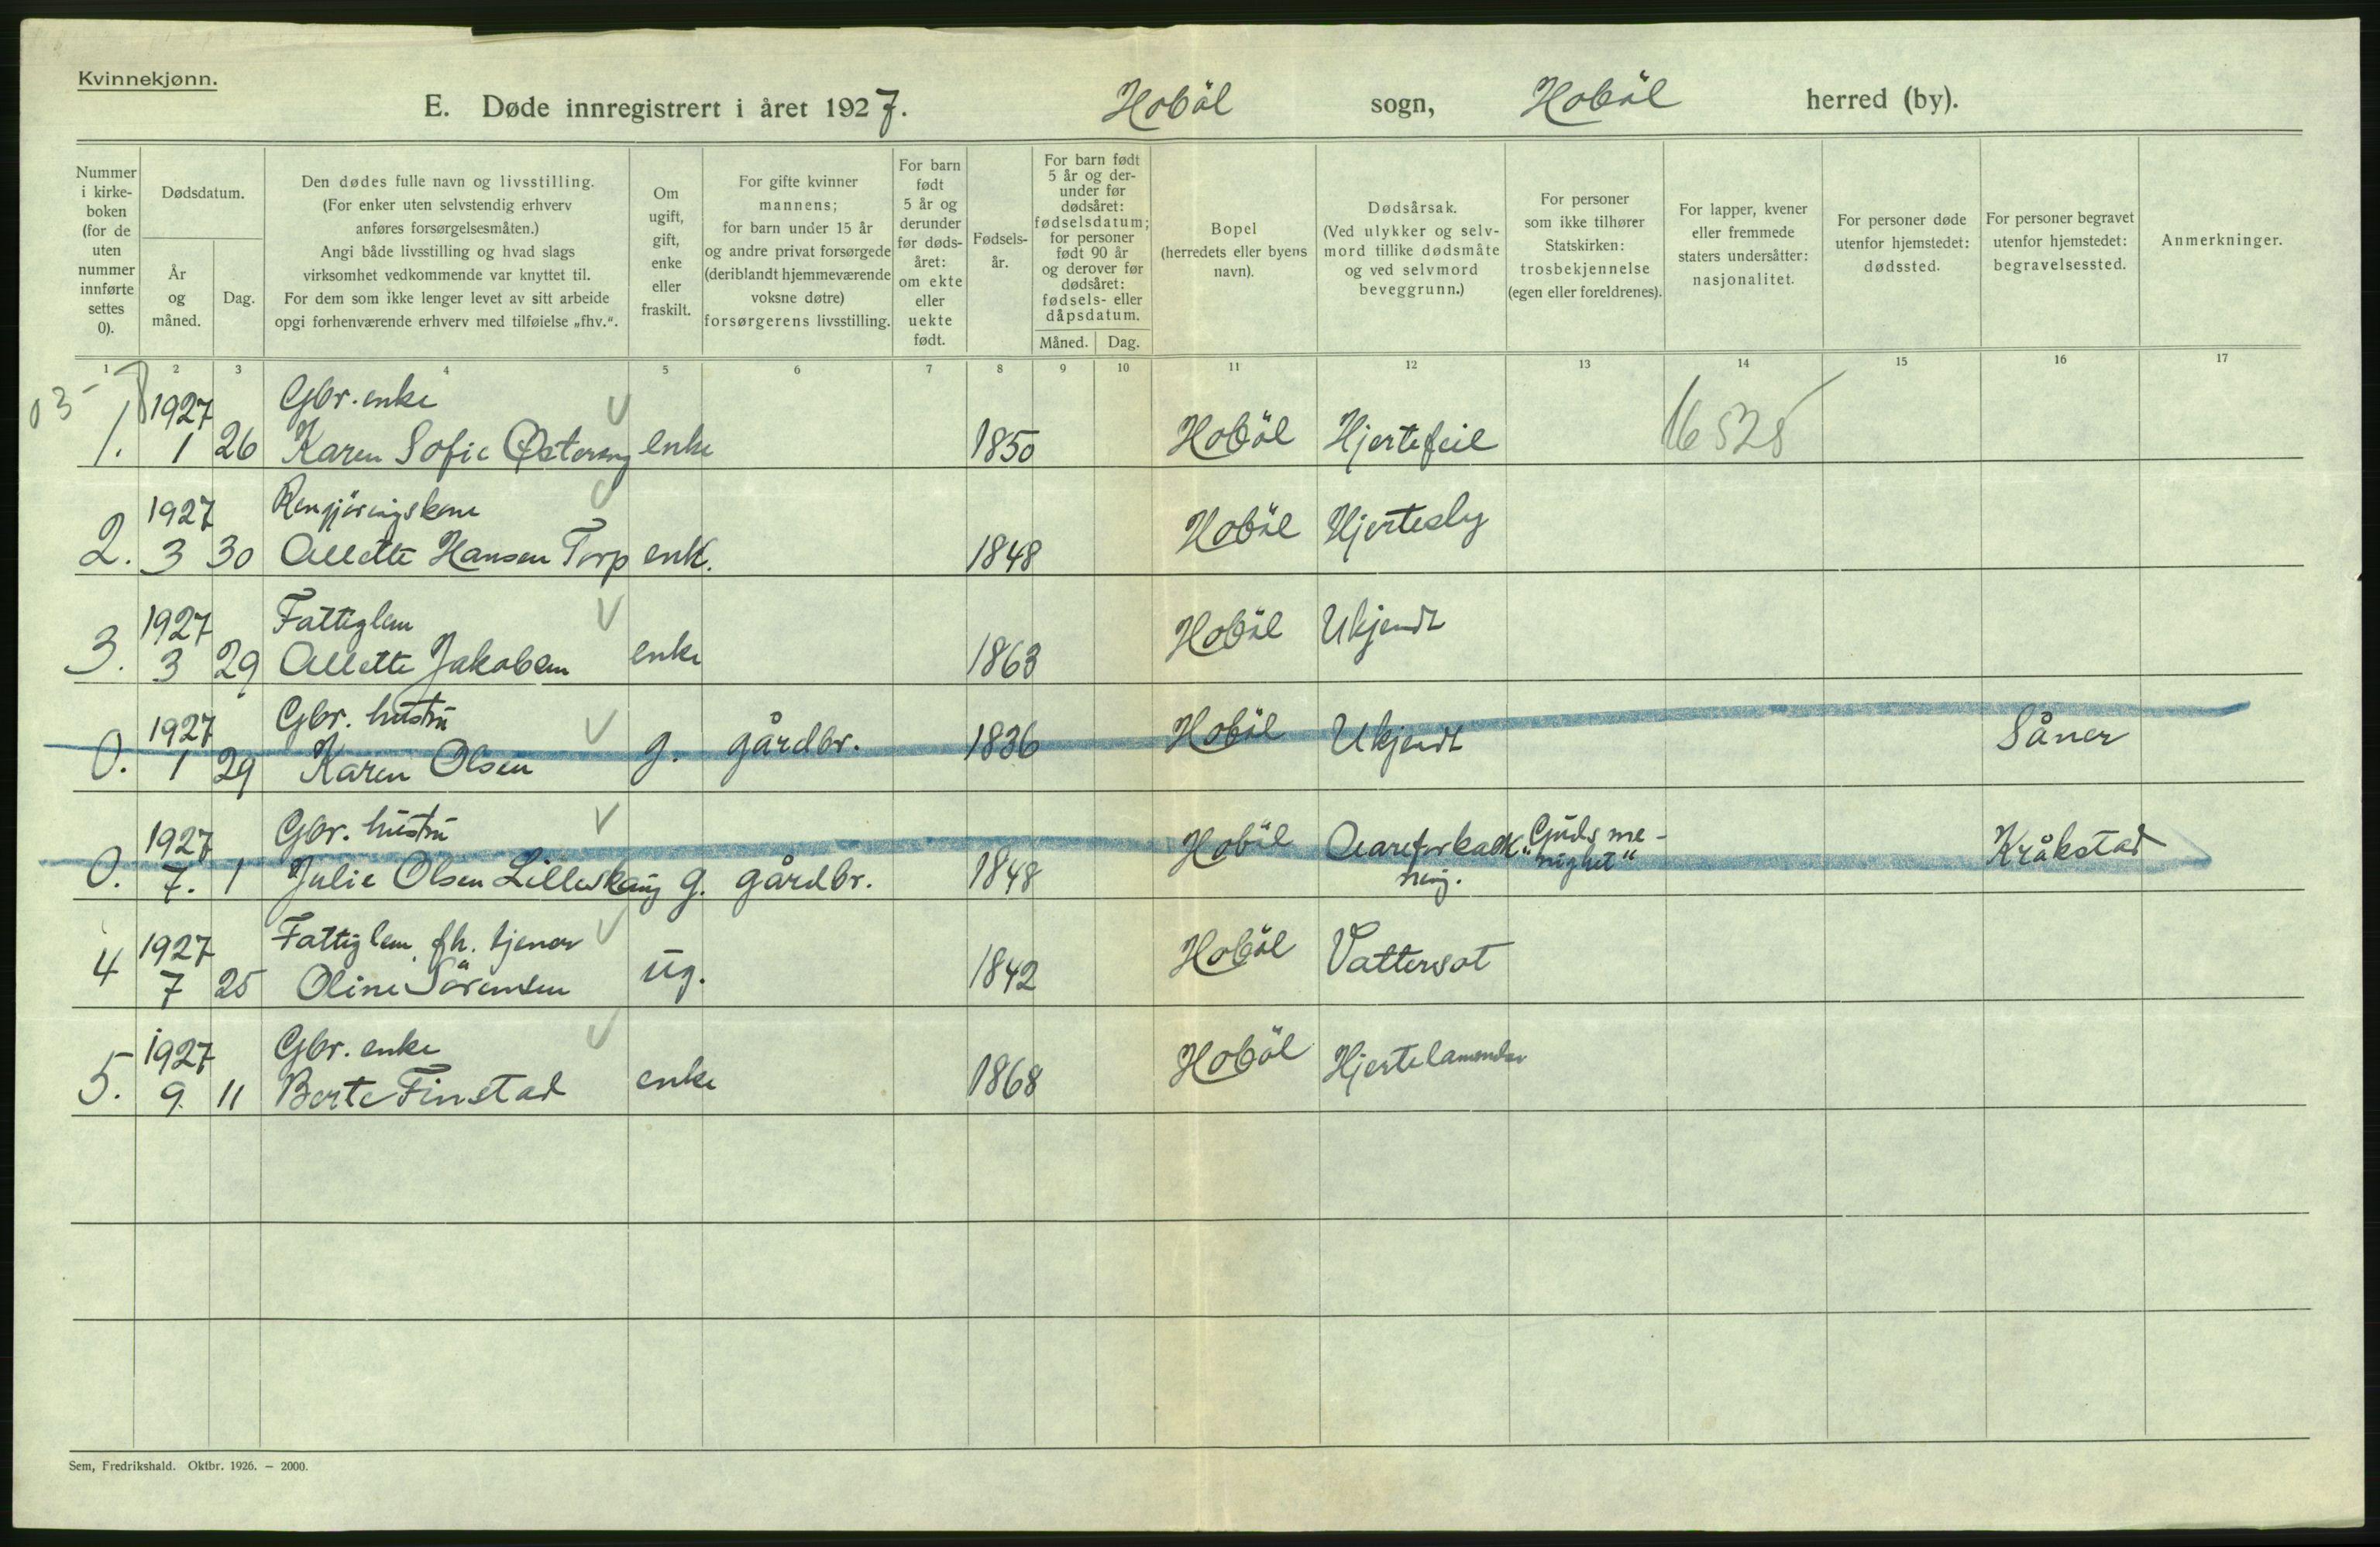 Kvinnekjønn.
E. Døde innregistrert i året 1927. Hobøl sogn, Hobøl herred (by).
Nummer i kirke-boken (for de uten nummer innførte settes 0).
Dødsdatum.
År og måned.
Dag.
Den dødes fulle navn og livsstilling.
(For enker uten selvstendig erhverv
anføres forsørgelsesmåten.)
Angi både livsstilling og hvad slags
virksomhet vedkommende var knyttet til.
For dem som ikke lenger levet av sitt arbeide
opgi forhenværende erhverv med tilføielse „fhv.".
Om ugift, gift, enke eller fraskilt.
For gifte kvinner
mannens;
for barn under 15 år
og andre privat forsørgede
(deriblandt hjemmeværende
voksne døtre)
forsørgerens livsstilling.
For barn født 5 år og derunder før døds-året: om ekte eller uekte født.
Fødsels-år.
For barn født
5 år og der-
under før
dødsåret:
fødselsdatum;
for personer
født 90 år
og derover før
dødsåret:
fødsels- eller
dåpsdatum.
Måned. Dag.
Bopel
(herredets eller byens
navn).
Dødsårsak.
(Ved ulykker og selv-
mord tillike dødsmåte
og ved selvmord
beveggrunn.)
For personer
som ikke tilhører
Statskirken:
trosbekjennelse
(egen eller foreldrenes).
For lapper, kvener
eller fremmede
staters undersåtter:
nasjonalitet.
For personer døde
utenfor hjemstedet:
dødssted.
For personer begravet
utenfor hjemstedet:
begravelsessted.
Anmerkninger.
1 2 3 4 5 6 7 8 9 10 11 12 13 14 15 16 17
03
1927 Gbr. enke
1. 1 26 Karen Sofie Østereng enke 1850 Hobøl Hjertefeil 16528
1927 Rengjøringskone
2. 3 30 Allette Hansen Torp enk. 1848 Hobøl Hjerteslg
1927 Fattiglem
3. 3 29 Allette Jakobsen enke 1863 Hobøl Ukjendt
1927 Gbr. hustru
0. 1 29 Karen Olsen g. gårdbr. 1836 Hobøl Ukjendt Såner
1927 Gbr. hustru
0. 7. 1 Julie Olsen Lilleskaug g. gårdbr. 1848 Hobøl Aareforkalk-
ning. "Guds me-
nighet" Kråkstad
1927 Fattiglem, fh. tjener
4 7 25 Oline Sørensen ug. 1842 Hobøl Vattersot
1927 Gbr. enke
5. 9. 11 Berte Finstad enke 1868 Hobøl
Sem, Fredrikshald. Oktbr. 1926. — 2000.